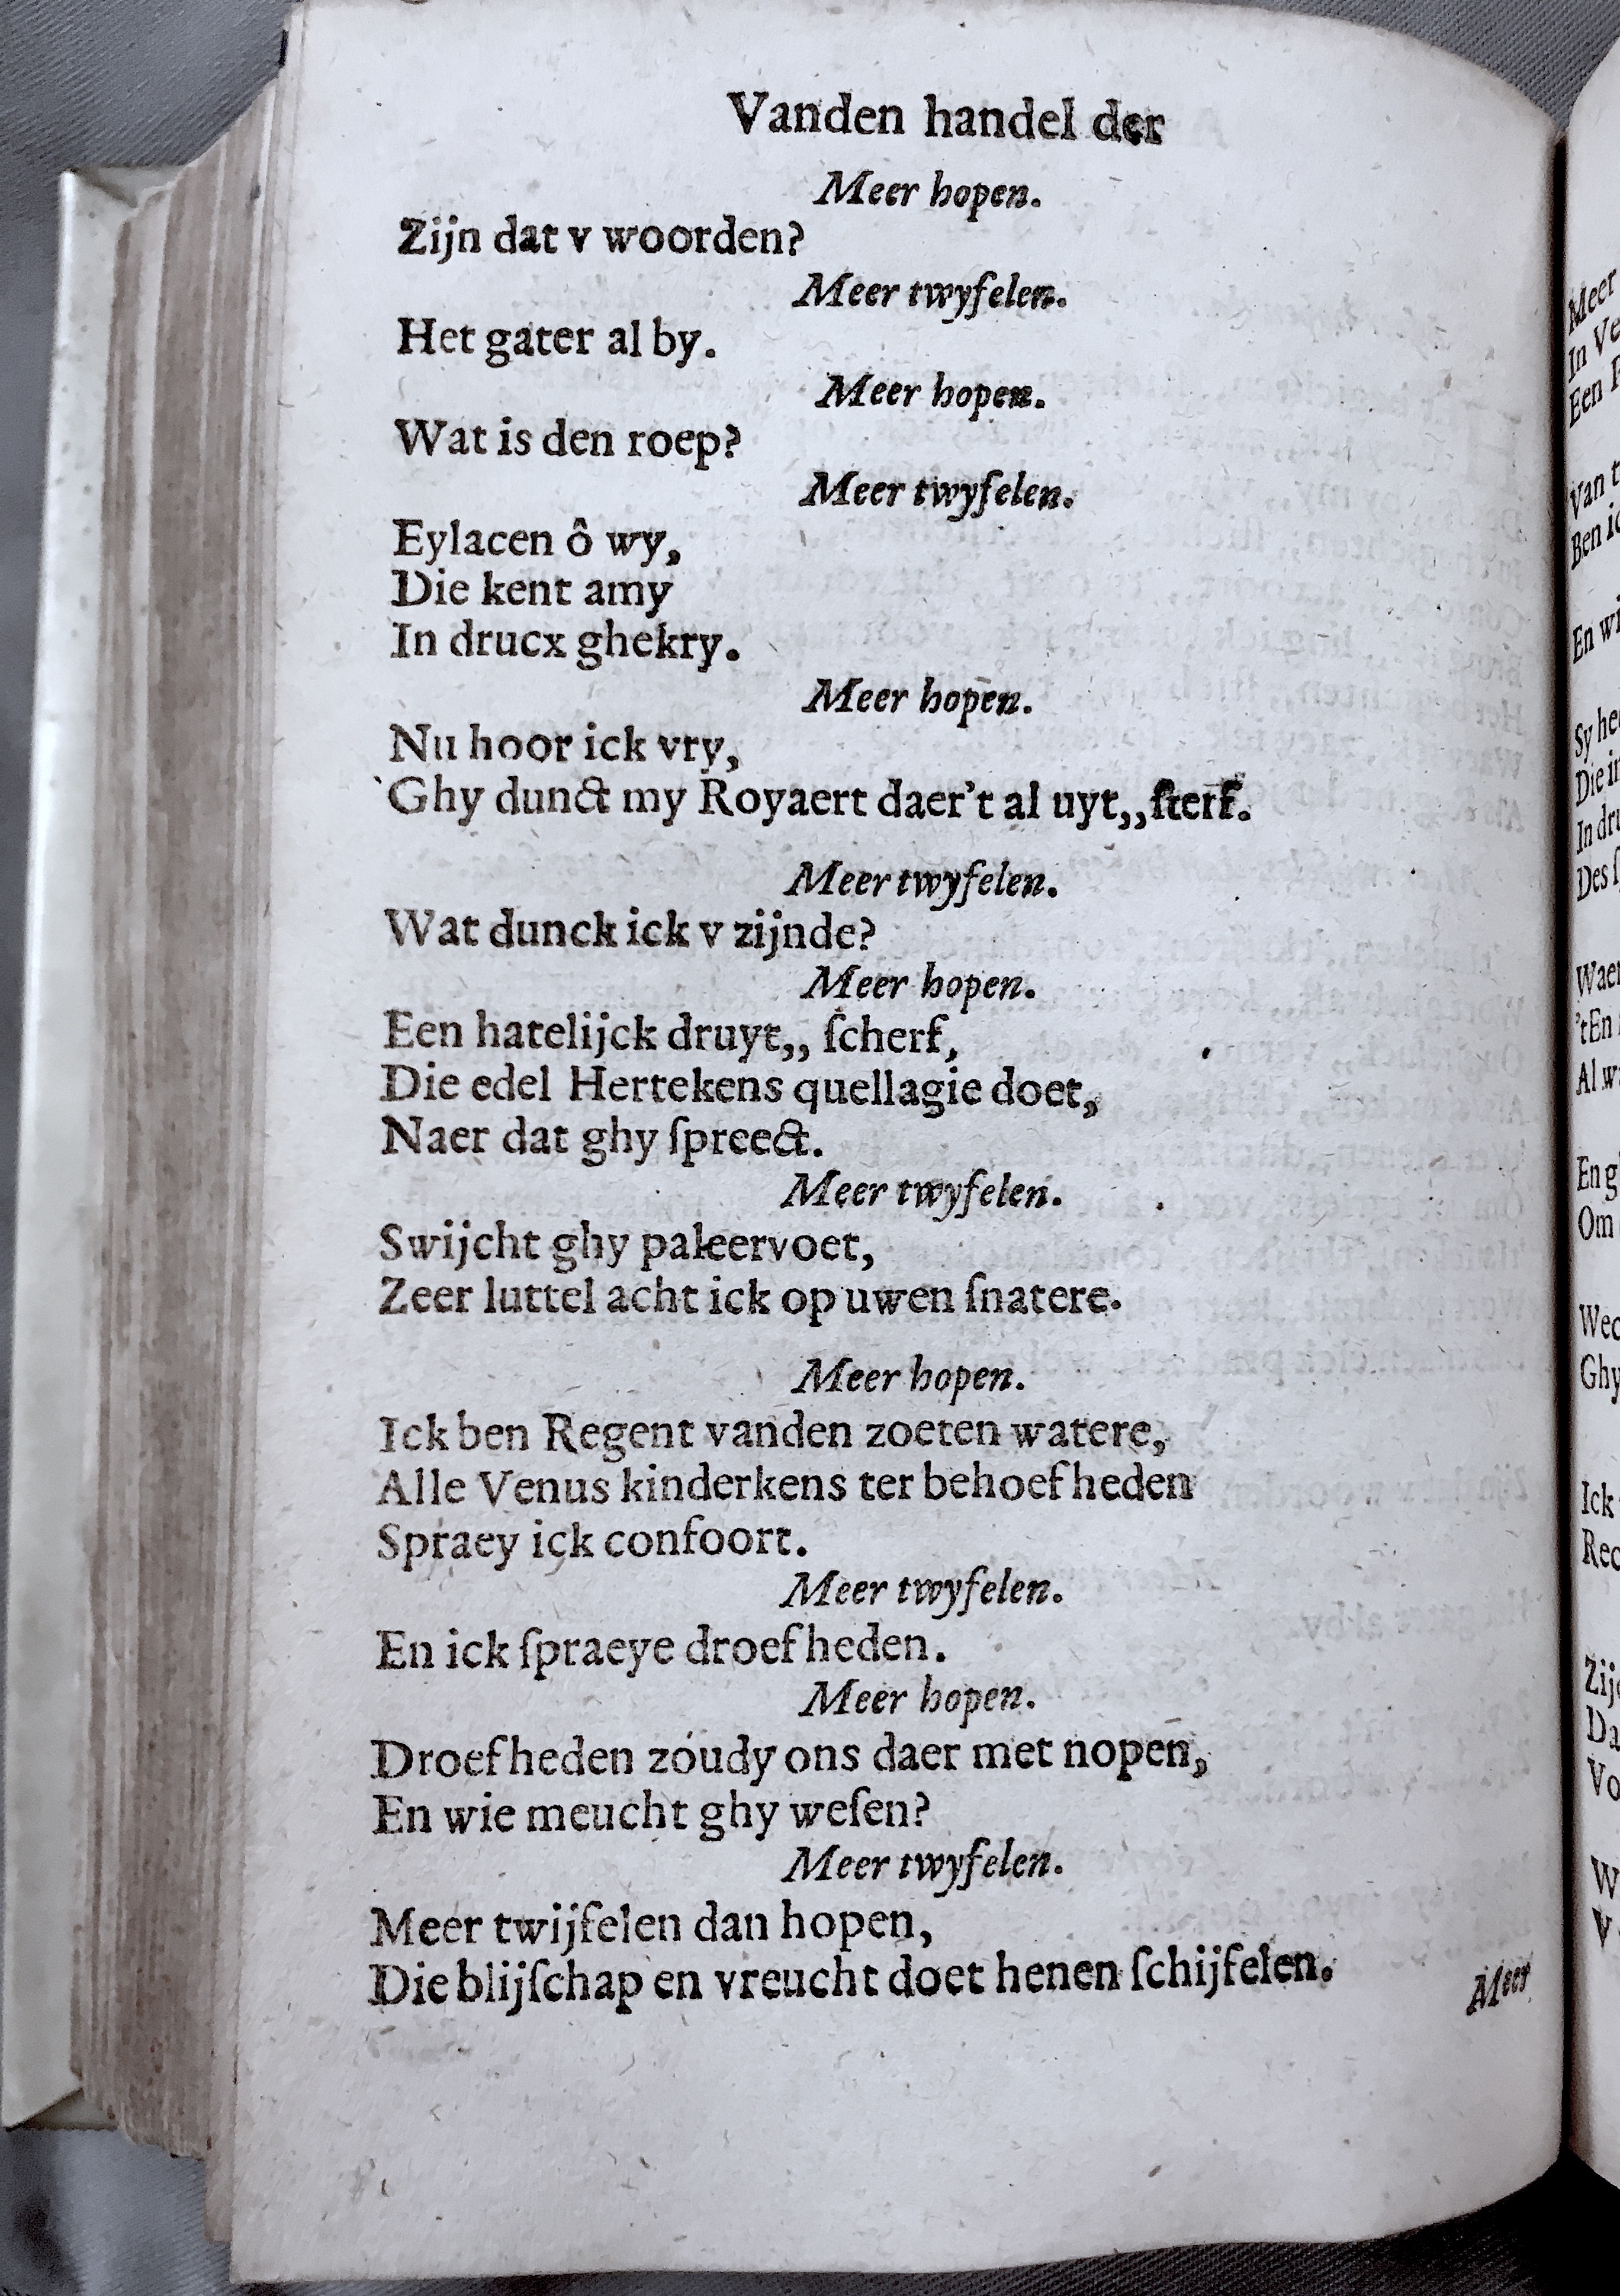 Vanden handel der
Meer hopen.
Zijn dat v woorden?
Meer twyfelen.
Het gater al by.
Meer hopen.
Wat is den roep?
Meer twyfelen.
Eylacen ô wy,
Die kent amy
In drucx ghekry.
Meer hopen.
Nu hoor ick vry,
Ghy dunct my Royaert daer't al uyt,, ſterf.
Meer twyfelen.
Wat dunck ick v zijnde?
Meer hopen.
Een hatelijck druyt,, ſcherf,
Die edel Hertekens quellagie doet,
Naer dat ghy ſpreect.
Meer twyfelen.
Swijcht ghy paleervoet,
Zeer luttel acht ick op uwen ſnatere.
Meer hopen.
Ick ben Regent vanden zoeten watere,
Alle Venus kinderkens ter behoefheden
Spraey ick confoort.
Meer twyfelen.
En ick ſpraeye droefheden.
Meer hopen.
Droefheden zoudy ons daer met nopen,
En wie meucht ghy weſen?
Meer twyfelen.
Meer twijfelen dan hopen,
Die blijſchap en vreucht doet henen ſchijfelen.
Meer
Meer
In
Een
Van
Ben
En
Sy
Die
In
Des
Waer
'tEn
Al
En
Om
Ghy
Ick